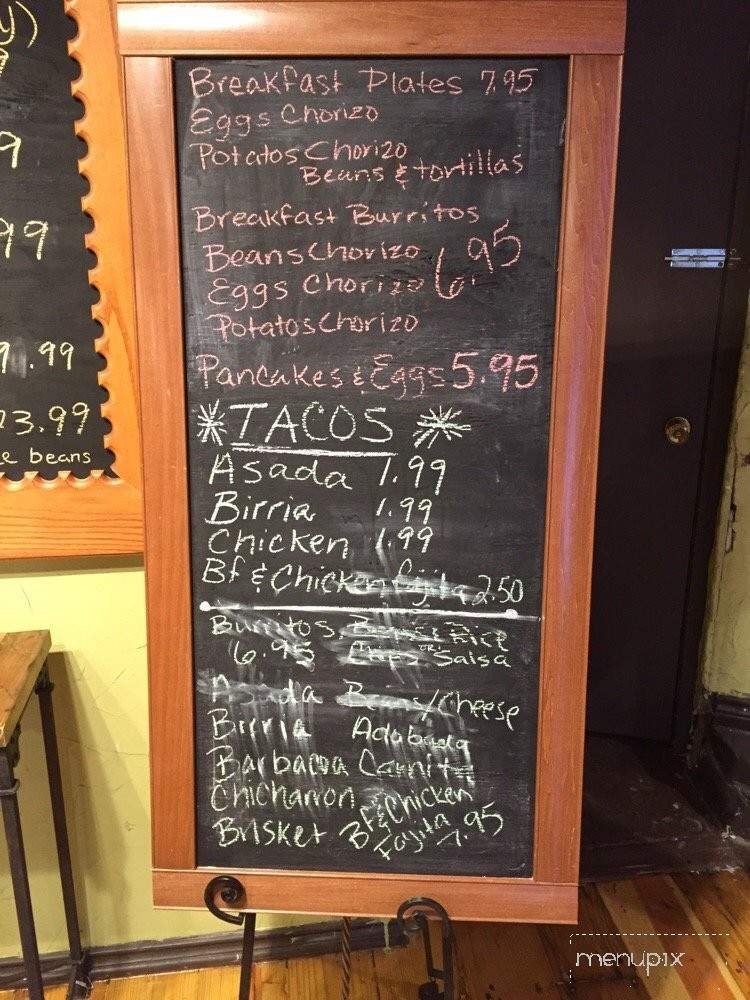 Breakfast Plates 7.95
Eggs Chorizo
Potatos Chorizo
Beans & tortillas
Breakfast Burritos
Beans Chorizo
6.95
Eggs Chorizo
Potatos Chorizo
Pancakes & Eggs 5.95
TACOS
Asada 1.99
Birria 1.99
Chicken 1.99
Bf & Chicken fijita 2.50
Burritos, Beans & Rice
6.95 Chips or Salsa
Asada Beans/Cheese
Birria Adobada
Barbacoa Carnita
Chicharron
Brisket Bf & Chicken
Fajita 7.95
y)
9
99
9.99
3.99
beans
menupix